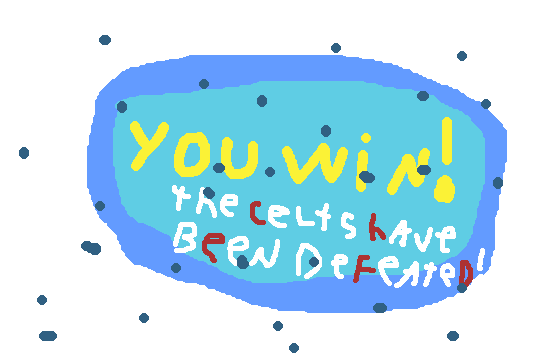 YOU WiN!
the CELTS hAve
BeeN DeFeAted!